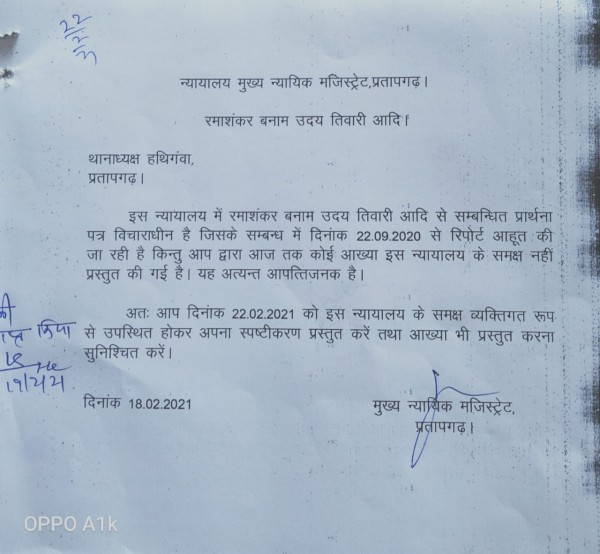 22
2
21
न्यायालय मुख्य न्यायिक मजिस्ट्रेट,प्रतापगढ़।
रमाशंकर बनाम उदय तिवारी आदि।
थानाध्यक्ष हथिगंवा,
प्रतापगढ़।
इस न्यायालय में रमाशंकर बनाम उदय तिवारी आदि से सम्बन्धित प्रार्थना
पत्र विचाराधीन है जिसके सम्बन्ध में दिनांक 22.09.2020 से रिपोर्ट आहूत की
जा रही है किन्तु आप द्वारा आज तक कोई आख्या इस न्यायालय के समक्ष नहीं
प्रस्तुत की गई है। यह अत्यन्त आपत्तिजनक है।
अतः आप दिनांक 22.02.2021 को इस न्यायालय के समक्ष व्यक्तिगत रूप
से उपस्थित होकर अपना स्पष्टीकरण प्रस्तुत करें तथा आख्या भी प्रस्तुत करना
सुनिश्चित करें।
की
किया
दिनांक 18.02.2021
मुख्य न्यायिक मजिस्ट्रेट,
प्रतापगढ़।
OPPO A1k